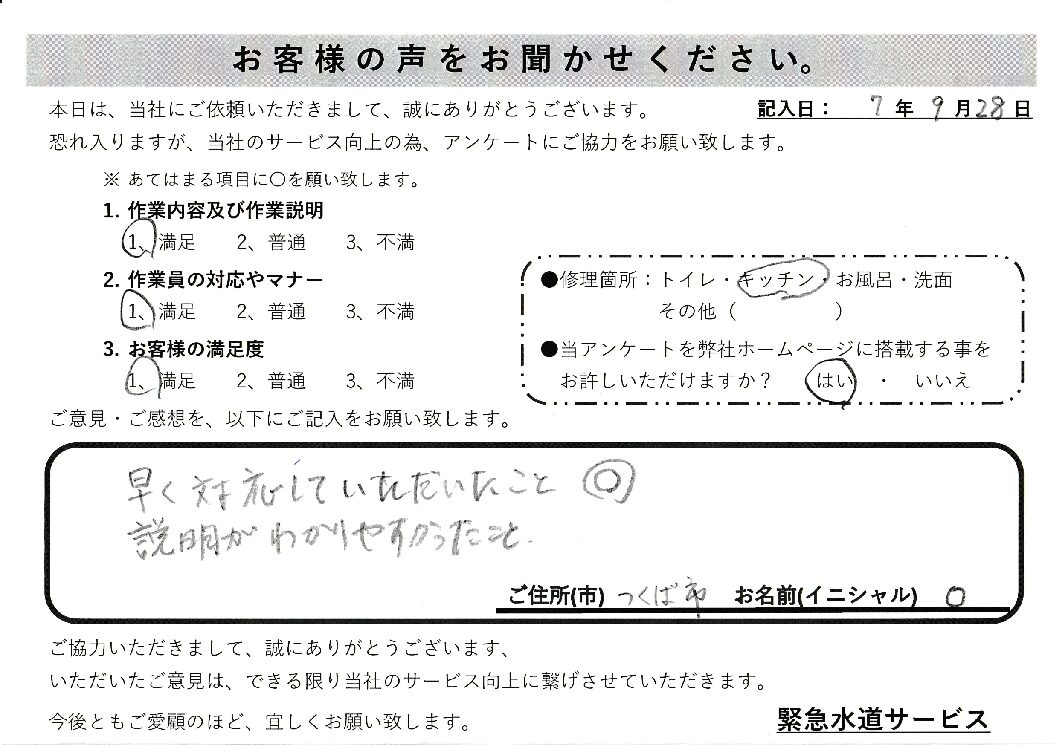 お客様の声をお聞かせください。
本日は、当社にご依頼いただきまして、誠にありがとうございます。
記入日： 7 年 9 月 28 日
恐れ入りますが、当社のサービス向上の為、アンケートにご協力をお願い致します。
※ あてはまる項目に〇を願い致します。
1. 作業内容及び作業説明
1、満足 2、普通 3、不満
2. 作業員の対応やマナー
1、満足 2、普通 3、不満
3. お客様の満足度
1、満足 2、普通 3、不満
●修理箇所：トイレ・キッチン・お風呂・洗面
その他（ ）
●当アンケートを弊社ホームページに搭載する事を
お許しいただけますか？ はい ・ いいえ
ご意見・ご感想を、以下にご記入をお願い致します。
早く対応していただいたこと ◎
説明がわかりやすかったこと.
ご住所(市) つくば市 お名前(イニシャル) O
ご協力いただきまして、誠にありがとうございます、
いただいたご意見は、できる限り当社のサービス向上に繋げさせていただきます。
今後ともご愛顧のほど、宜しくお願い致します。
緊急水道サービス